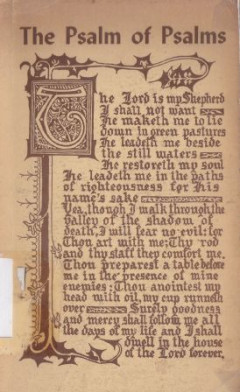 The Psalm of Psalms
The Lord is my Shepherd
I shall not want
He maketh me to lie
down in green pastures
He leadeth me beside
the still waters
He restoreth my soul
He leadeth me in the paths
of righteousness for His
name's sake
Yea, though I walk through the
valley of the shadow of
death, I will fear no evil: for
Thou art with me; Thy rod
and thy staff they comfort me,
Thou preparest a table before
me in the presence of mine
enemies: Thou anointest my
head with oil, my cup runneth
over Surely goodness
and mercy shall follow me all
the days of my life and I shall
dwell in the house
of the Lord forever.